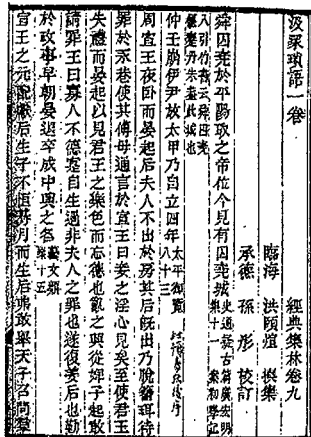 汲冢瑣語一卷　經典集林卷九
臨海　洪頤煊　撰集
承德　孫彤　校訂
舜囚堯於平陽取之帝位今見有囚堯城
仲壬崩伊尹放太甲乃自立四年 太平御覽八十三
周宣王夜卧而晏起后夫人不出於房姜后既出乃脫簪珥待
罪於永巷使其傅母通言於宣王曰妾之淫心見矣至使君王
失禮而晏起以見君王之樂色而忘德也亂之興從婢子起敢
請罪王曰寡人不德寔自生過非夫人之罪也遂復姜后也勤
於政事早朝晏退卒成中興之名 藝文類聚十五
宣王之元妃獻后生子不恒期月而生后弗敢舉天子召問羣